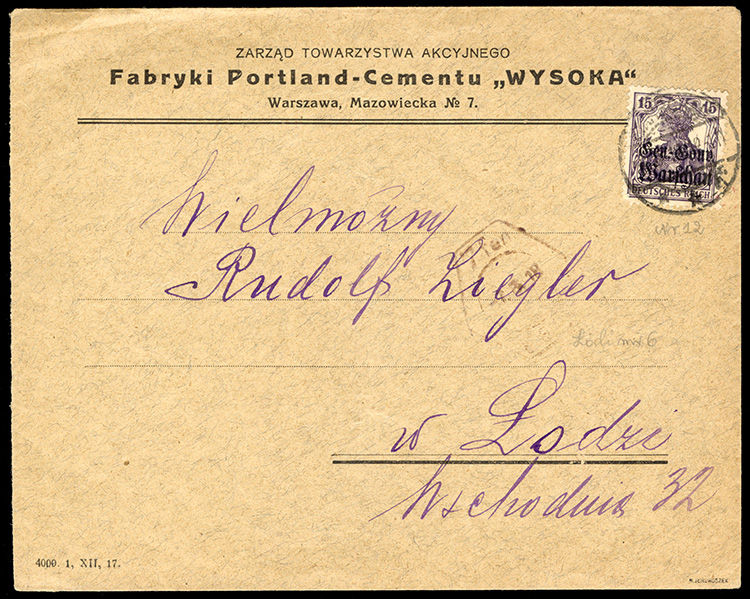 ZARZĄD TOWARZYSTWA AKCYJNEGO
Fabryki Portland-Cementu „WYSOKA“
Warszawa, Mazowiecka № 7.
15 15
Gen.-Gouv.
Warschau
DEUTSCHES REICH
Nr 12
Wielmożny
Rudolf Ziegler
Łódź nr 6
w Łodzi
Wschodnia 32
4000. 1, XII, 17.